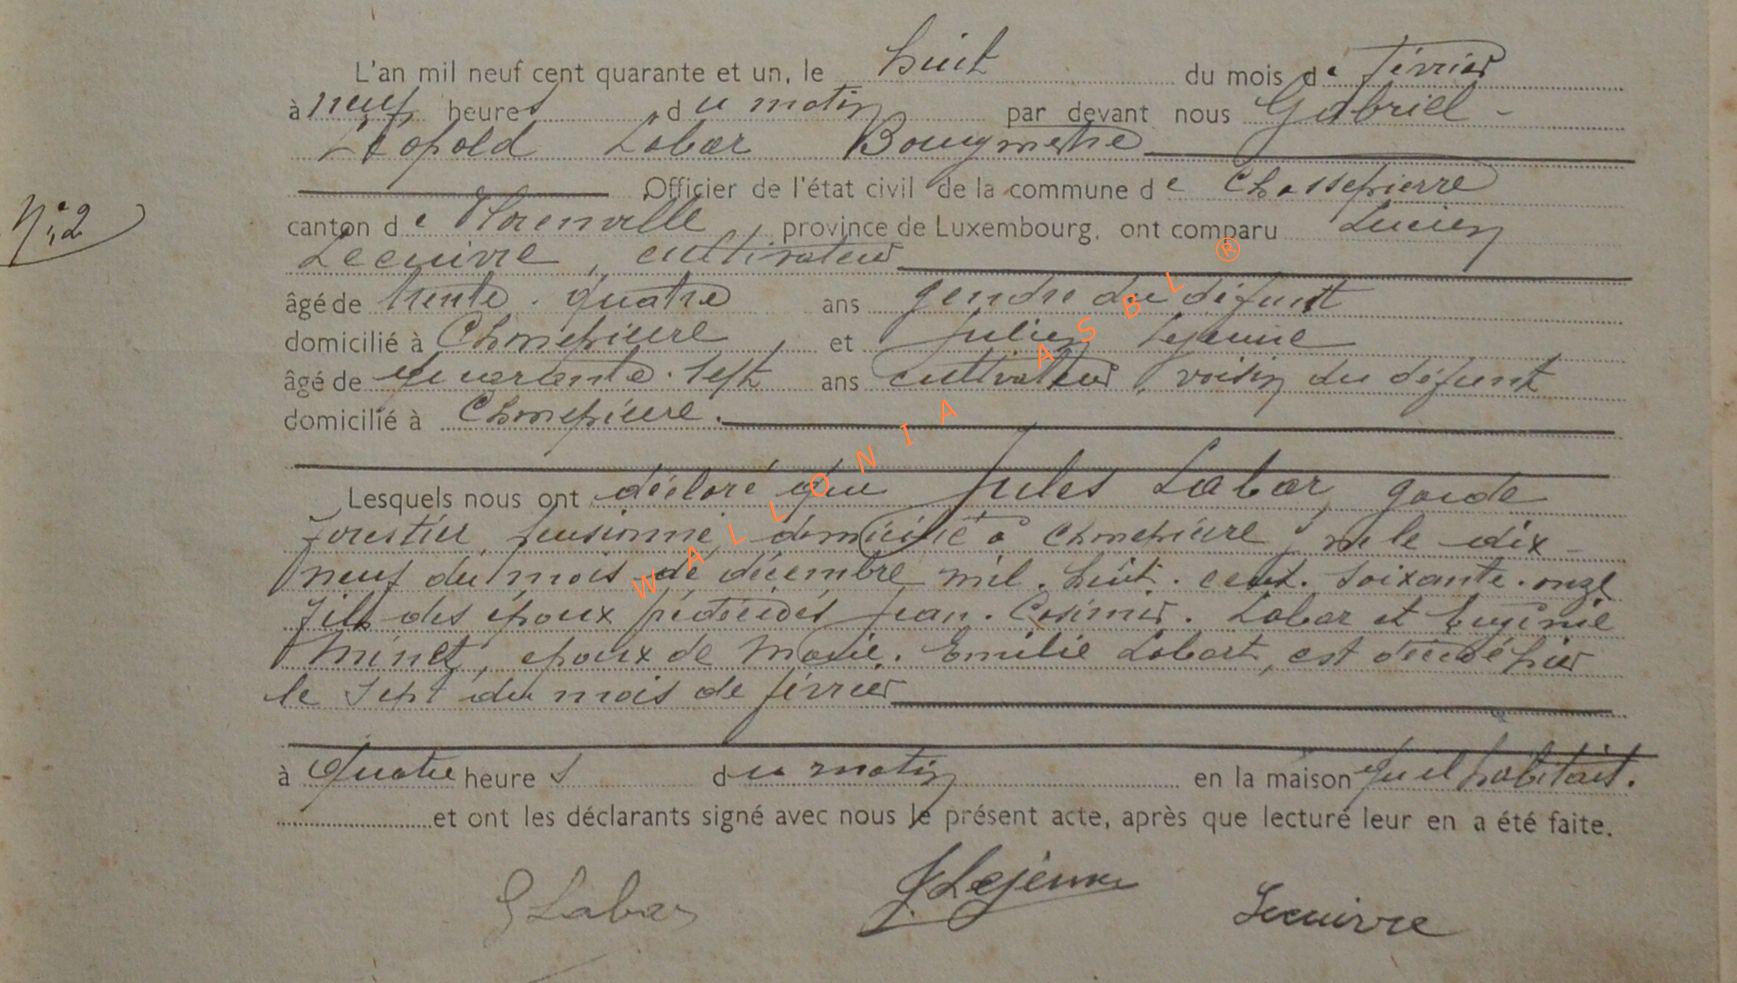 L'an mil neuf cent quarante et un, le huit du mois de février
à neuf heures du matin par devant nous Gabriel -
Léopold Labar Bourgmestre
Officier de l'état civil de la commune de Chassepierre
N° 2
canton de Florenville province de Luxembourg, ont comparu Lucien
Lecuivre, cultivateur
âgé de trente-quatre ans gendre du défunt
domicilié à Chassepierre, et Julien Lejeune
âgé de quarante-sept ans cultivateur, voisin du défunt
domicilié à Chassepierre.
Lesquels nous ont déclaré que Jules Labar, garde
forestier pensionné, domicilié à Chassepierre, né le dix-
neuf du mois de décembre mil-huit-cent-soixante-onze
fils des époux prédécédés Jean-Casimir-Labar et Eugénie
Minet, époux de Marie-Emilie Labart, est décédé hier
le sept du mois de février
à quatre heures du matin en la maison qu'il habitait.
et ont les déclarants signé avec nous le présent acte, après que lecture leur en a été faite.
G Labar J. Lejeune Lecuivre
WALLONIA ASBL ®